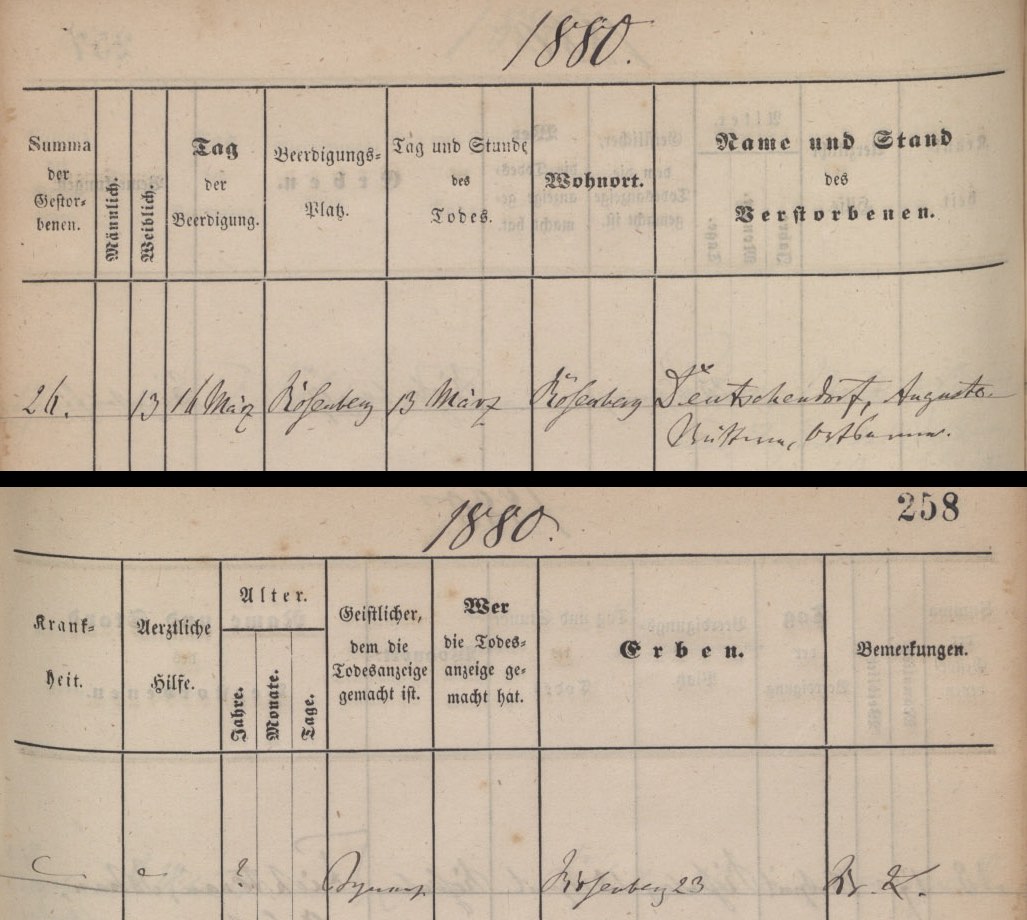 1880.
Summa der Gestorbenen.
Männlich.
Weiblich.
Tag der Beerdigung.
Beerdigungs-Platz.
Tag und Stunde des Todes.
Wohnort.
Name und Stand des Verstorbenen.
26. 13 16 März Rosenberg 13 März Rosenberg Deutschendorf, Auguste
Ortsarme.
1880.
258
Krankheit.
Aerztliche Hilfe.
Alter.
Jahre.
Monate.
Tage.
Geistlicher, dem die Todesanzeige gemacht ist.
Wer die Todesanzeige gemacht hat.
Erben.
Bemerkungen.
? Rosenberg 23